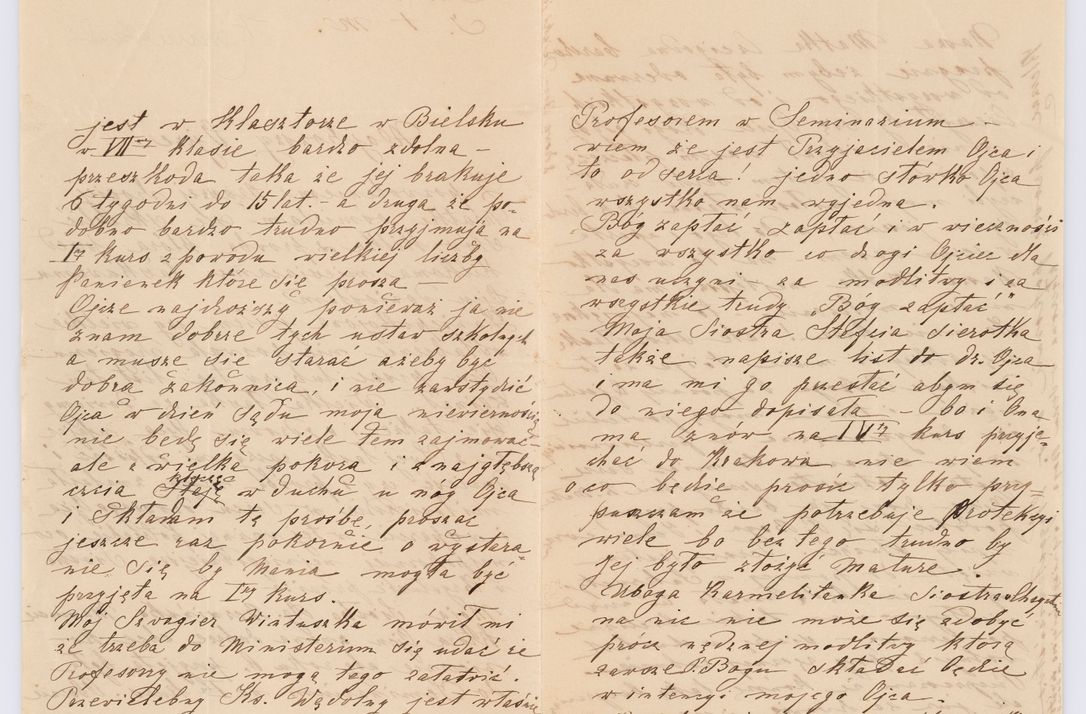 J. + M.
jest w Klasztorze w Bielsku
w VII mej Klasie bardzo zdolna –
przeszkoda taka że jej brakuje
6 tygodni do 15 lat. – a druga że po-
dobno bardzo trudno przyjmują na
I y kurs z powodu wielkiej liczby
Panienek które się proszą –
Ojcze najdroższy ponieważ ja nie
znam dobrze tych ustaw szkolnych
a muszę się starać ażeby być
dobrą zakonnicą, i nie zawstydzić
Ojca w dzień sądu moją niewiernością,
nie będę się wiele tem zajmować
ale z wielką pokorą i z najgłębszą
czcią klęczę w duchu u nóg Ojca
i składam tę prośbę, prosząc
jeszcze raz pokornie o wystara-
nie się by Mania mogła być
przyjęta na I y kurs.
Mój Szwagier Wintuszka mówił mi
że trzeba do Ministerium się udać że
Profesorzy nie mogą tego załatwić.
Przewielebny Ks. Wądolny jest właśnie
Profesorem w Seminarium –
wiem że jest Przyjacielem Ojca i
to od serca! jedno słówko Ojca
wszystko nam wyjedna.
Bóg zapłać – zapłać i w wieczności
za wszystko co drogi Ojciec dla
nas uczyni – za modlitwy i za
wszystkie trudy „Bóg zapłać”
Moja Siostra Stefcia sierotka
także napisze list do dr. Ojca
i ma mi go przesłać abym się
do niego dopisała – bo i Ona
ma znów na IV y kurs przyje-
chać do Krakowa nie wiem
o co będzie prosić tylko przy=
puszczam że potrzebuje Protekcyi
wiele bo bez tego trudno by
Jej było złożyć Maturę.
Uboga Karmelitanka Siostra
na nic nie może się zdobyć
prócz nędznej modlitwy którą
zawsze P. Bogu składać będzie
w intencyi mojego Ojca.